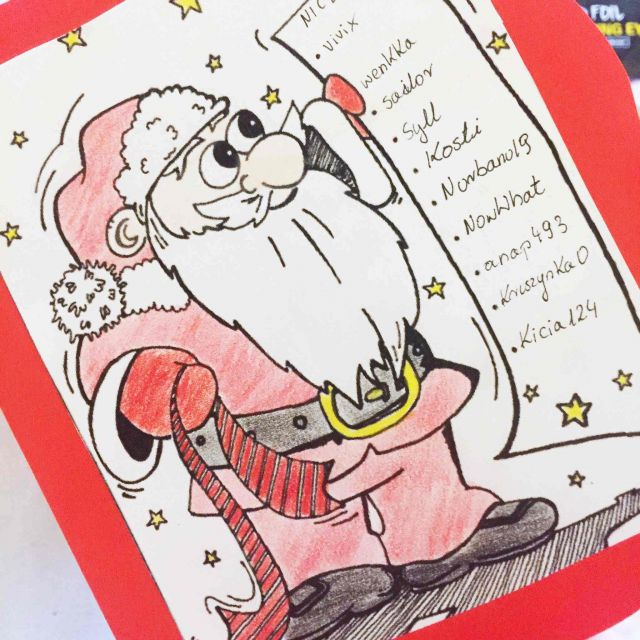 NICE
• vivix
• wenkka
• sailor
• Syll
• Kosti
• Norbano19
• NowWhat
• anap493
• Kruszynka0
• Kicia124
FOIL